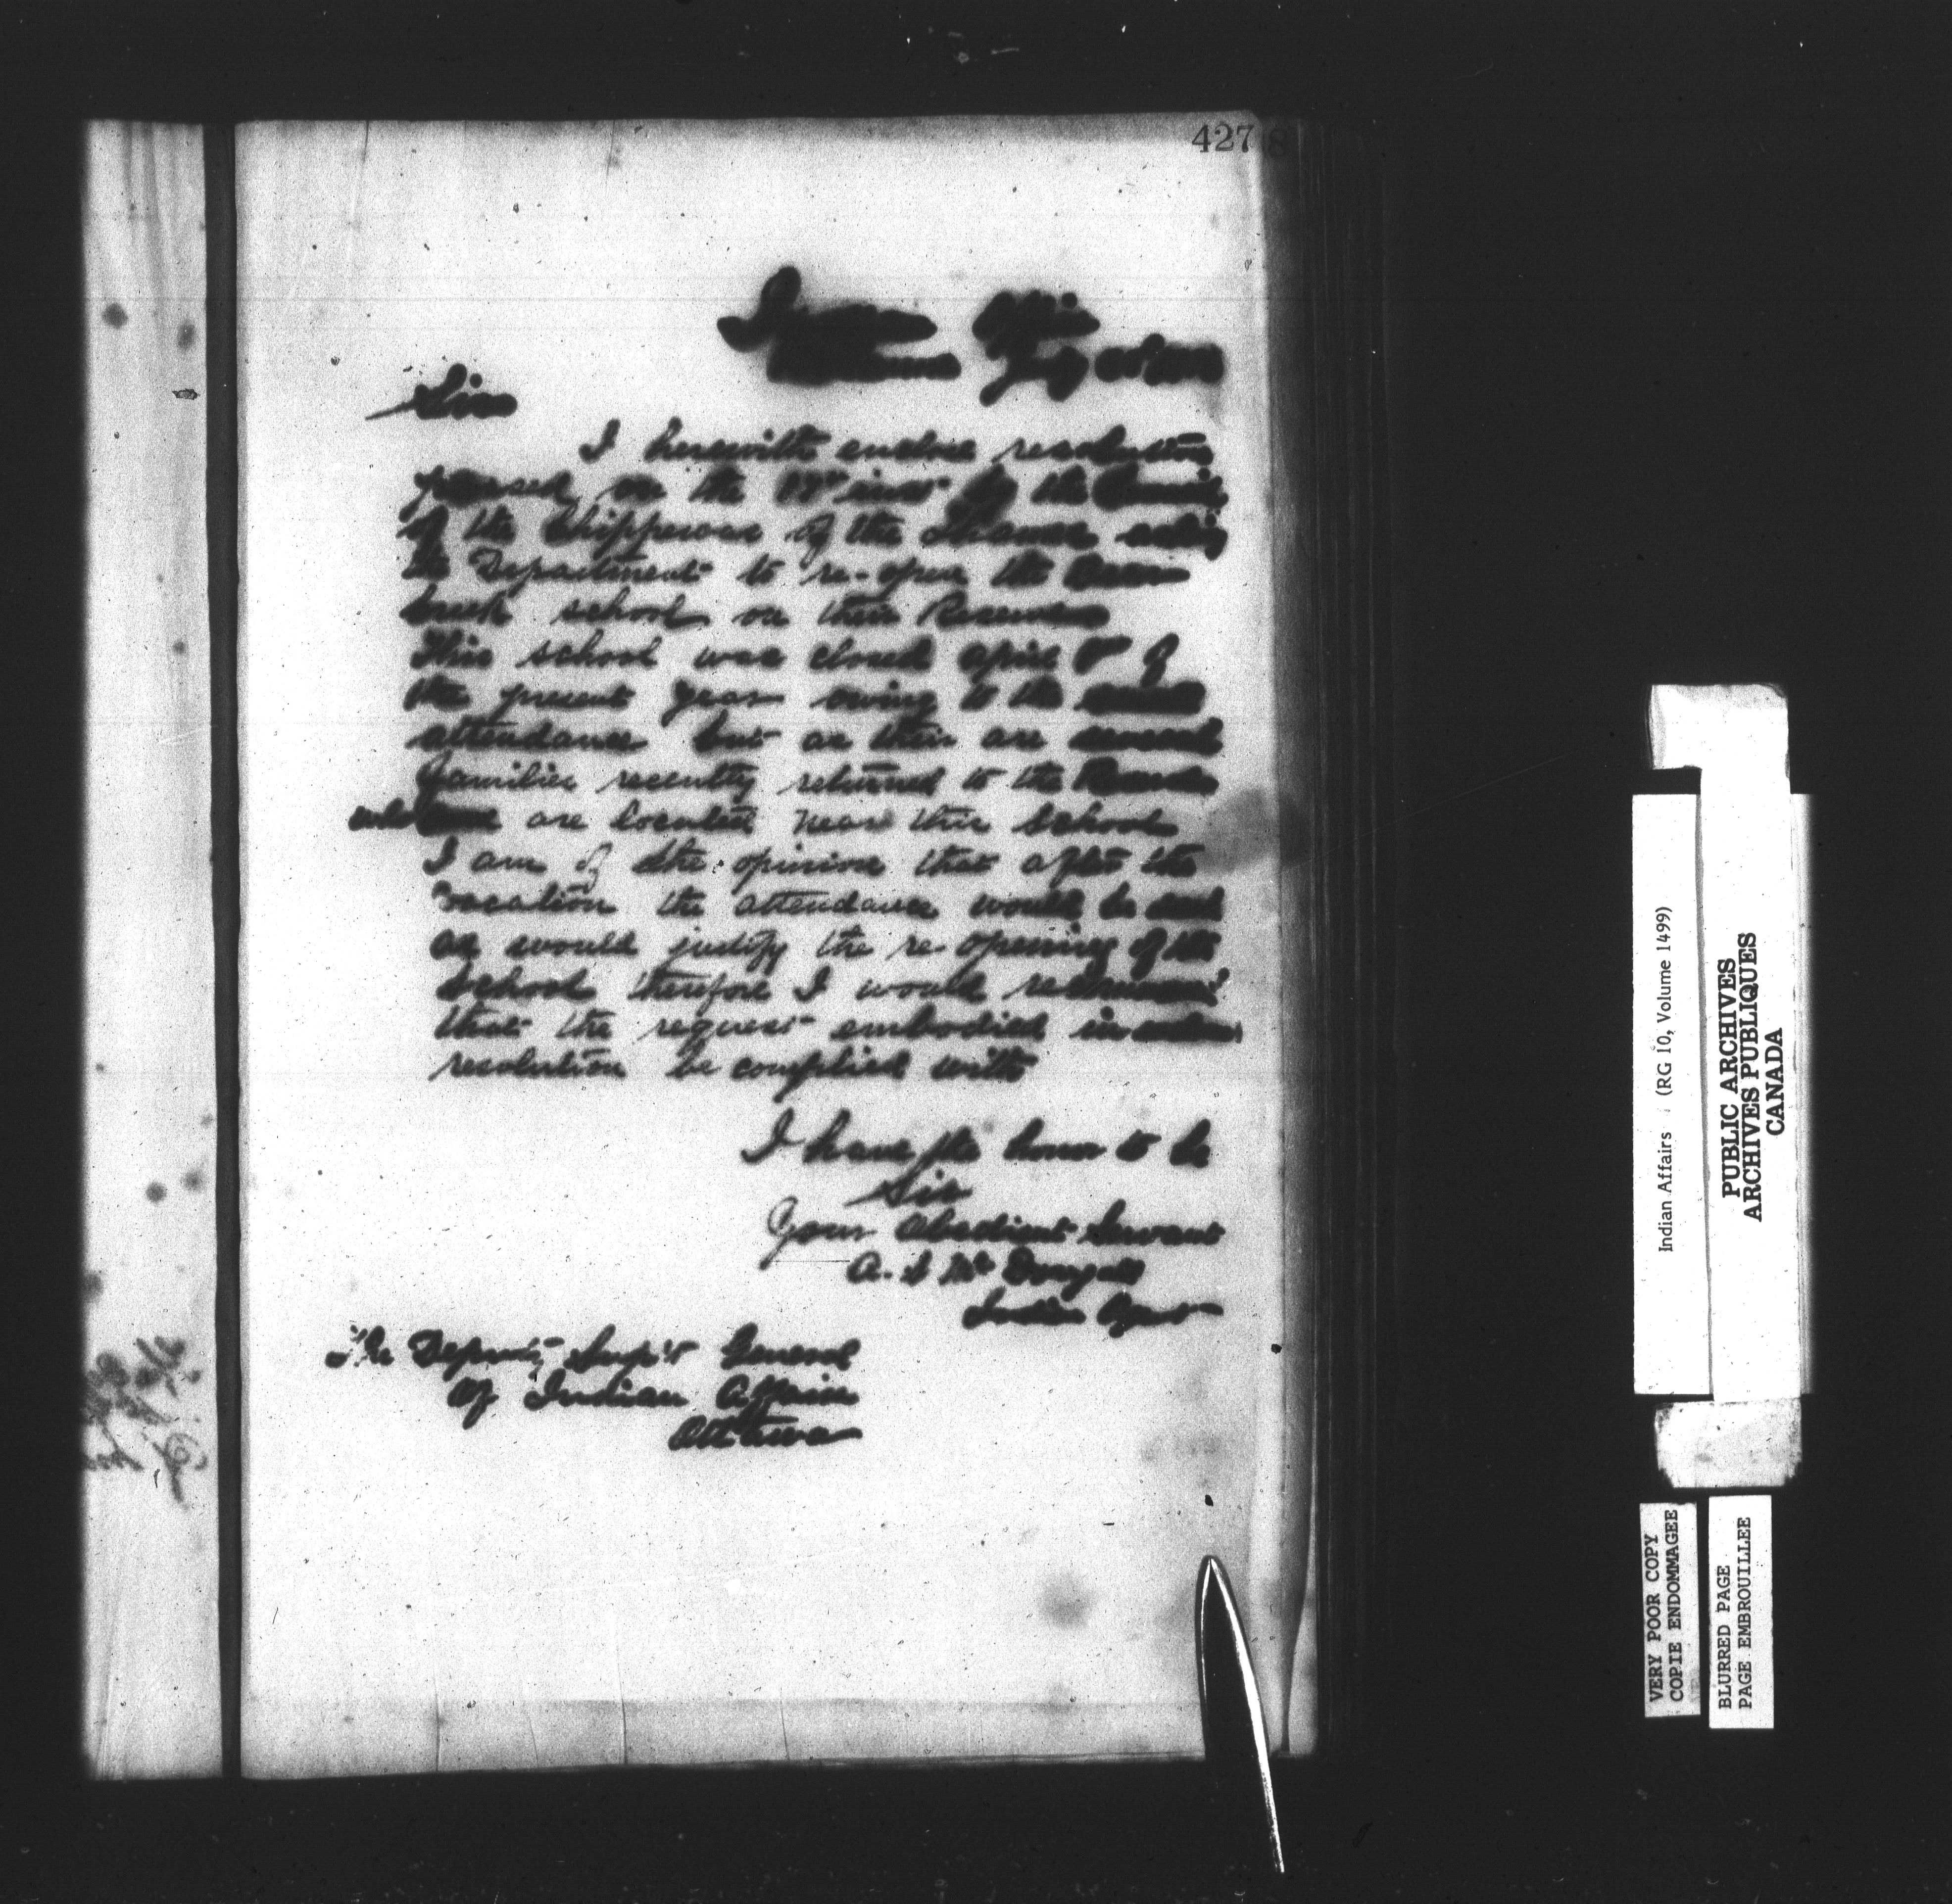 427
Indian Office
July
Sir
I herewith enclose resolution
passed on the inst by the Council
of the Chippewas of the Thames asking
the Department to re-open the
school on their Reserve
This school was closed April of
the present year owing to the small
attendance but as their are several
families recently returned to the Reserve
who are located near this School
I am of the opinion that after the
vacation the attendance would be such
as would justify the re opening of the
School therefore I would recommend
that the request embodied in
resolution be complied with
I have the honor to be
Sir
Your Obedient Servant
A. S Mc Dougall
Indian Agent
The Deputy Sup't General
Of Indian Affairs
Ottawa
Indian Affairs (RG 10, Volume 1499)
PUBLIC ARCHIVES
ARCHIVES PUBLIQUES
CANADA
VERY POOR COPY
COPIE ENDOMMAGEE
BLURRED PAGE
PAGE EMBROUILLEE